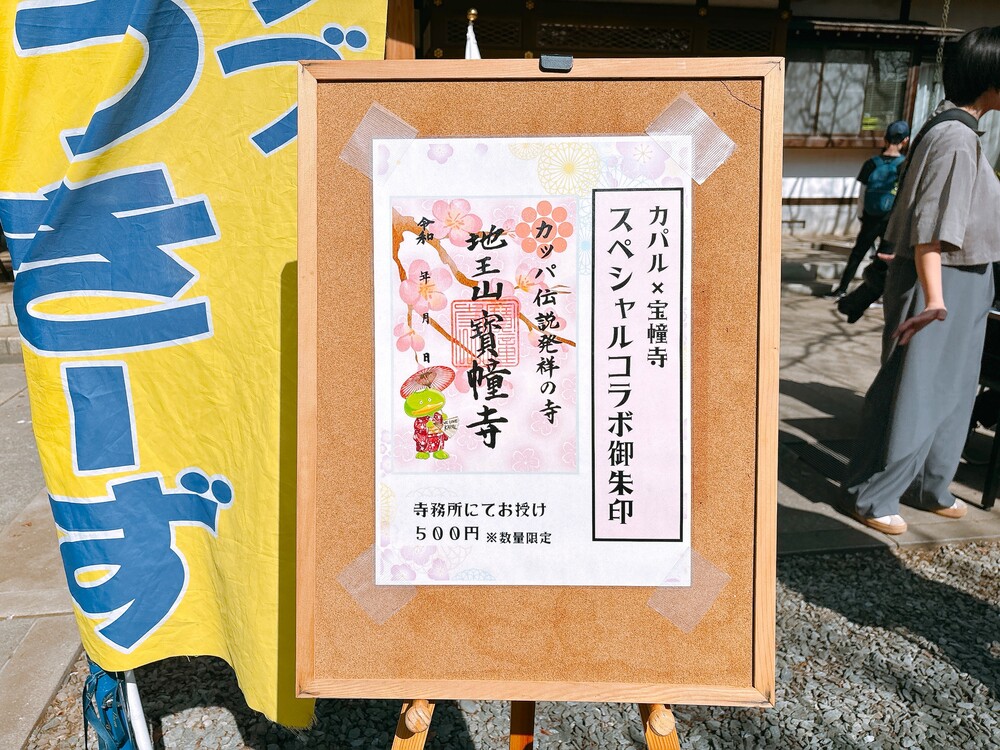 カパル×宝幢寺
スペシャルコラボ御朱印
カッパ伝説発祥の寺
地王山 寶幢寺
令和 年 月 日
寺務所にてお授け
500円 ※数量限定